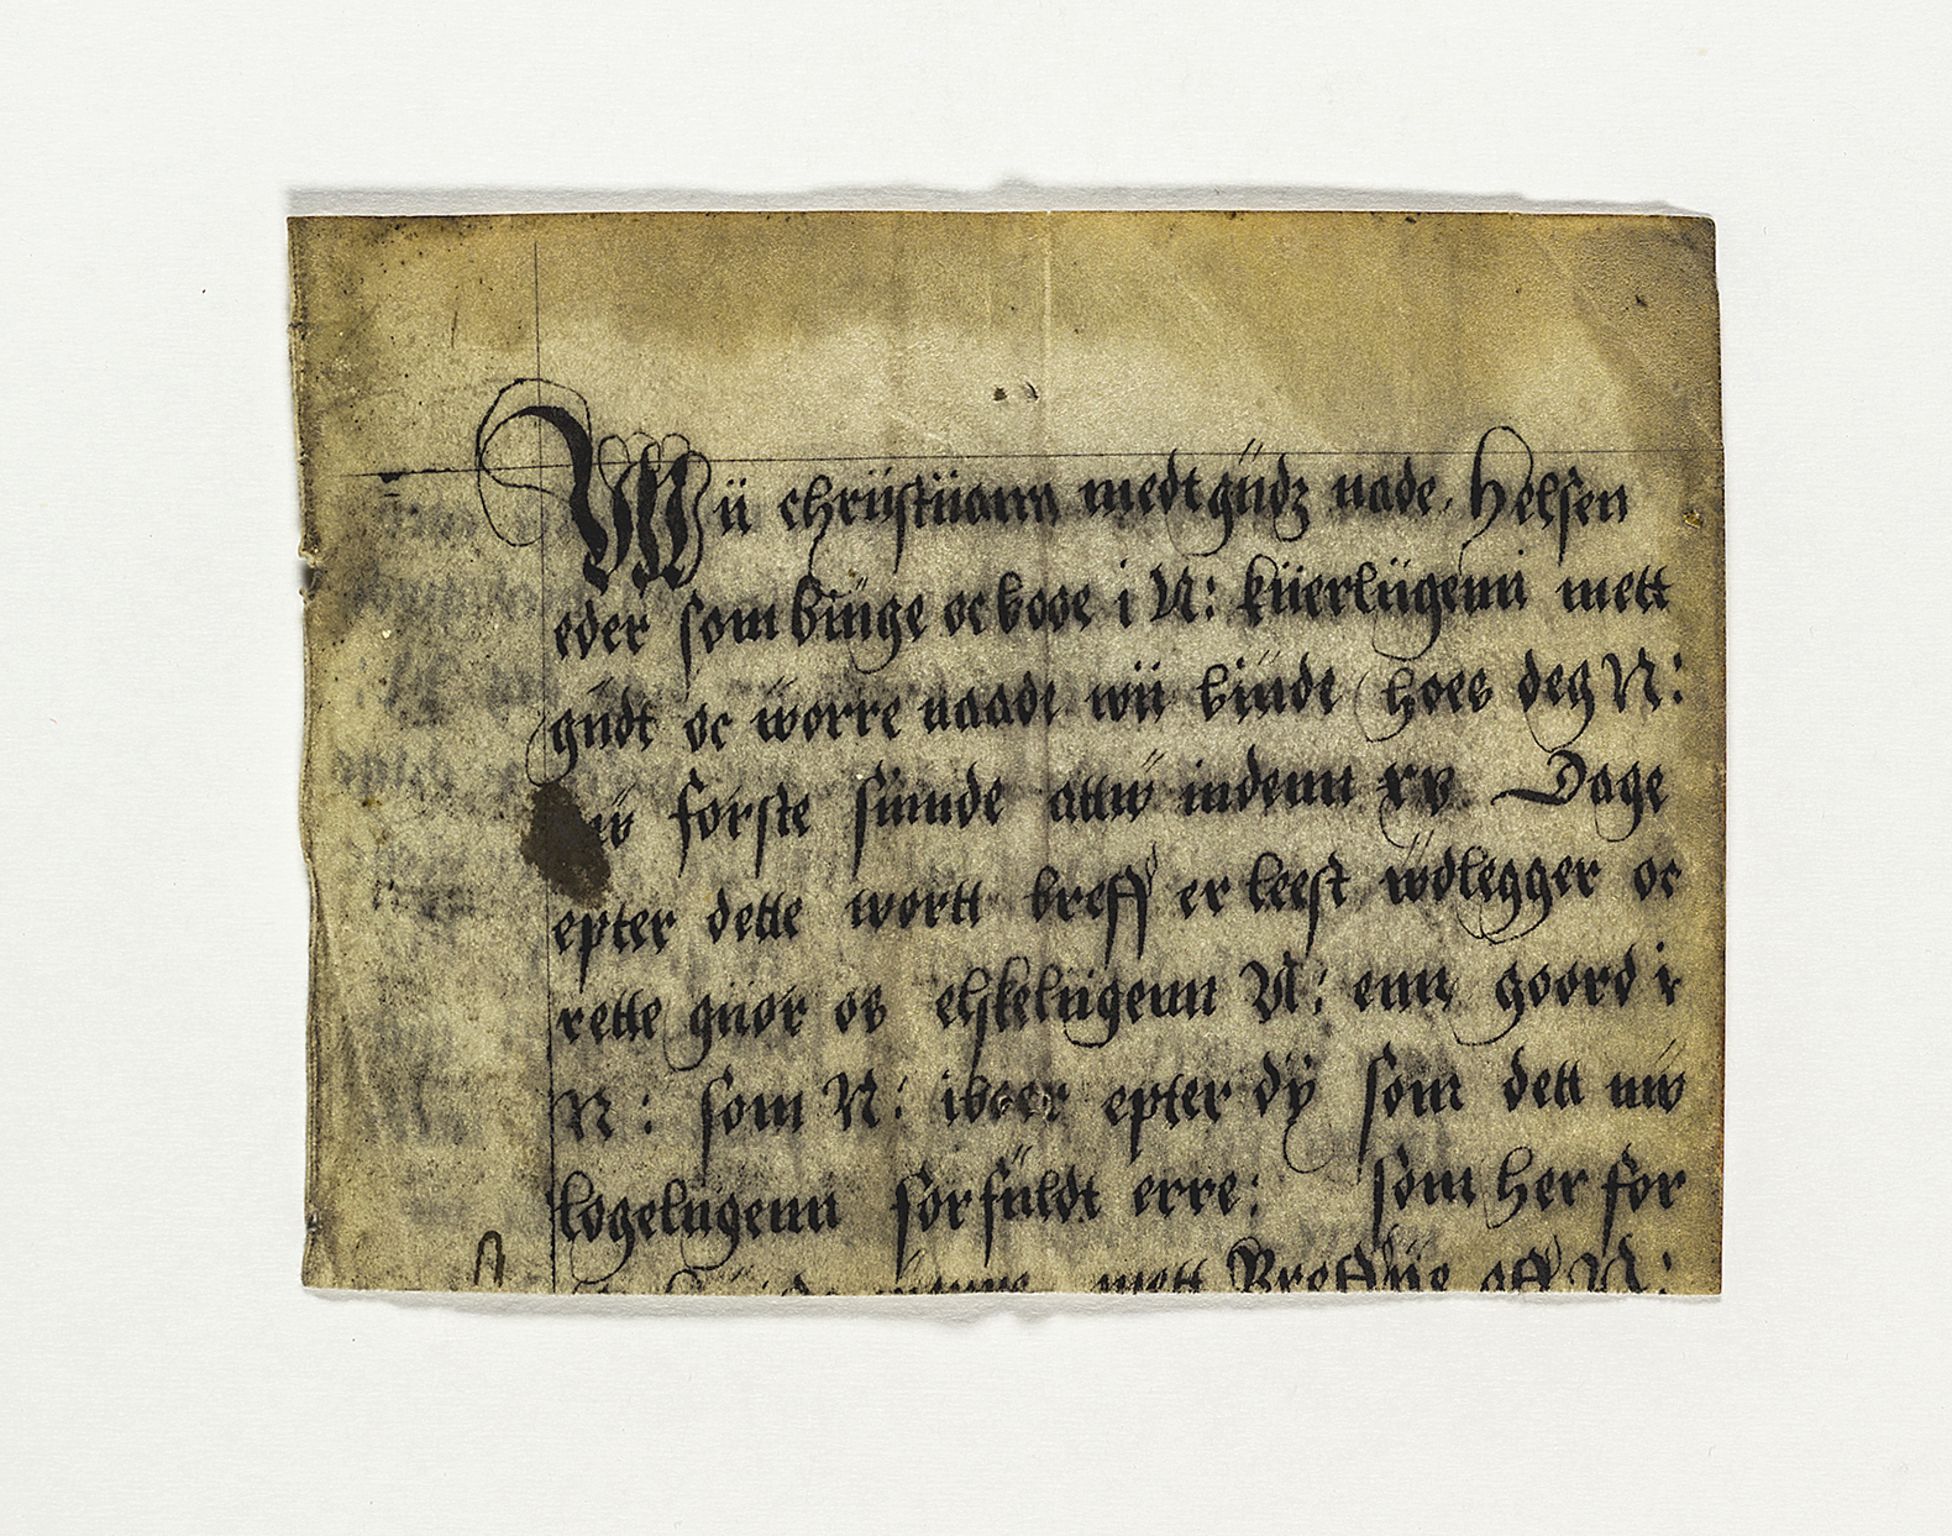 Wii chriistiiann medt gudz nade, Helsen
eder som biige oc booe i N: kiierliigenn mett
gudt oc worre naade wii biude hoes deg N:
första siinde attw indenn xv Dage
epter dette wortt breff er leest wdlegger oc
rette giiør os elskeliigenn N: enn goord i
N: som N: iboer epter dÿ som dett nw
logeliigenn forfuldt erre: som her for
mett Breffue aff N: